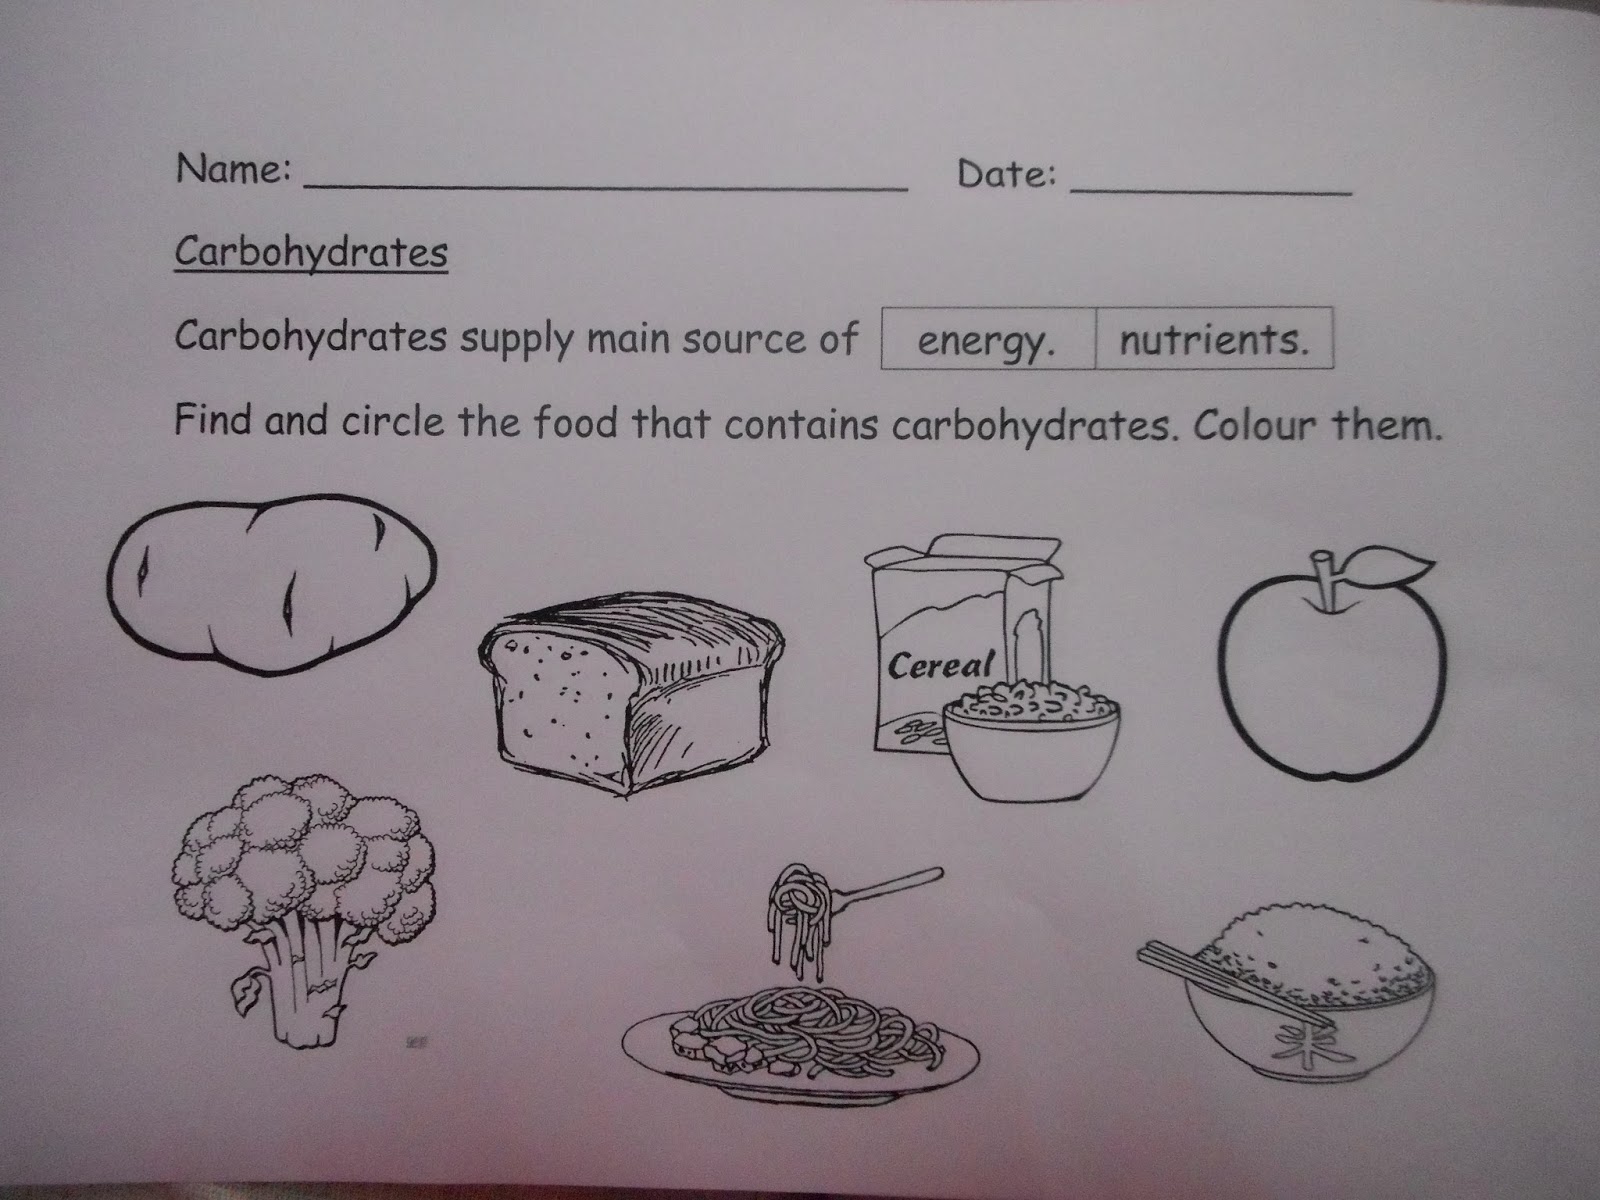 Name: ____________________ Date: __________
Carbohydrates
Carbohydrates supply main source of energy. nutrients.
Find and circle the food that contains carbohydrates. Colour them.
Cereal
米